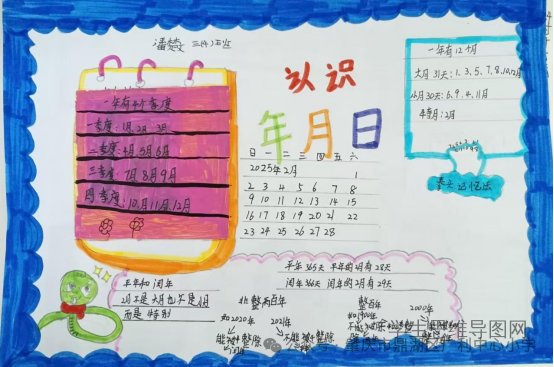 潘楚 三(4)班
认识
年月日
一年有4个季度
一季度:1月2月3月
二季度:4月5月6月
三季度:7月8月9月
四季度:10月11月12月
日一二三四五六
2025年2月 1
2 3 4 5 6 7 8
9 10 11 12 13 14 15
16 17 18 19 20 21 22
23 24 25 26 27 28
一年有12个月
大月31天:1、3、5、7、8、10、12月
小月30天:6、9、4、11月
2月
拳头记忆法
平年和闰年
2月不是大月也不是小月
而是特别
平年365天 平年的2月有28天
闰年366天 闰年的2月有29天
非整百年
如2020年 2021年
能被4整除 不能被4整除
整百年
如1900年 2000年
公众号
肇庆市鼎湖区广利中心小学